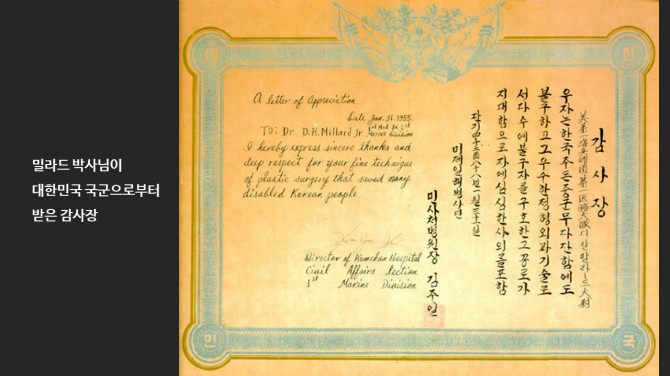 밀라드 박사님이
대한민국 국군으로부터
받은 감사장
A letter of Appreciation
Date Jan. 31. 1955.
TO: Dr. D.R. Millard Jr. 1st Med Bn 1st
Marine Division
I hereby express sincere thanks and
deep respect for your fine technique
of plastic surgery that saved many
disabled Korean people.
Director of Kumchon Hospital
Civil Affairs Section
1st Marine Division
감사장
美第一海兵師團第一医務大隊 大尉
우자는 한국 주든중 군무다단함에도
불구하고 그 우수한 정형외과 기술로
서 다수에 불구자를 구호한 그 꽁로가
지대함으로 자에 심심한 사의를 포함
미제일해병사단
미사처병원장 김주일
민
국